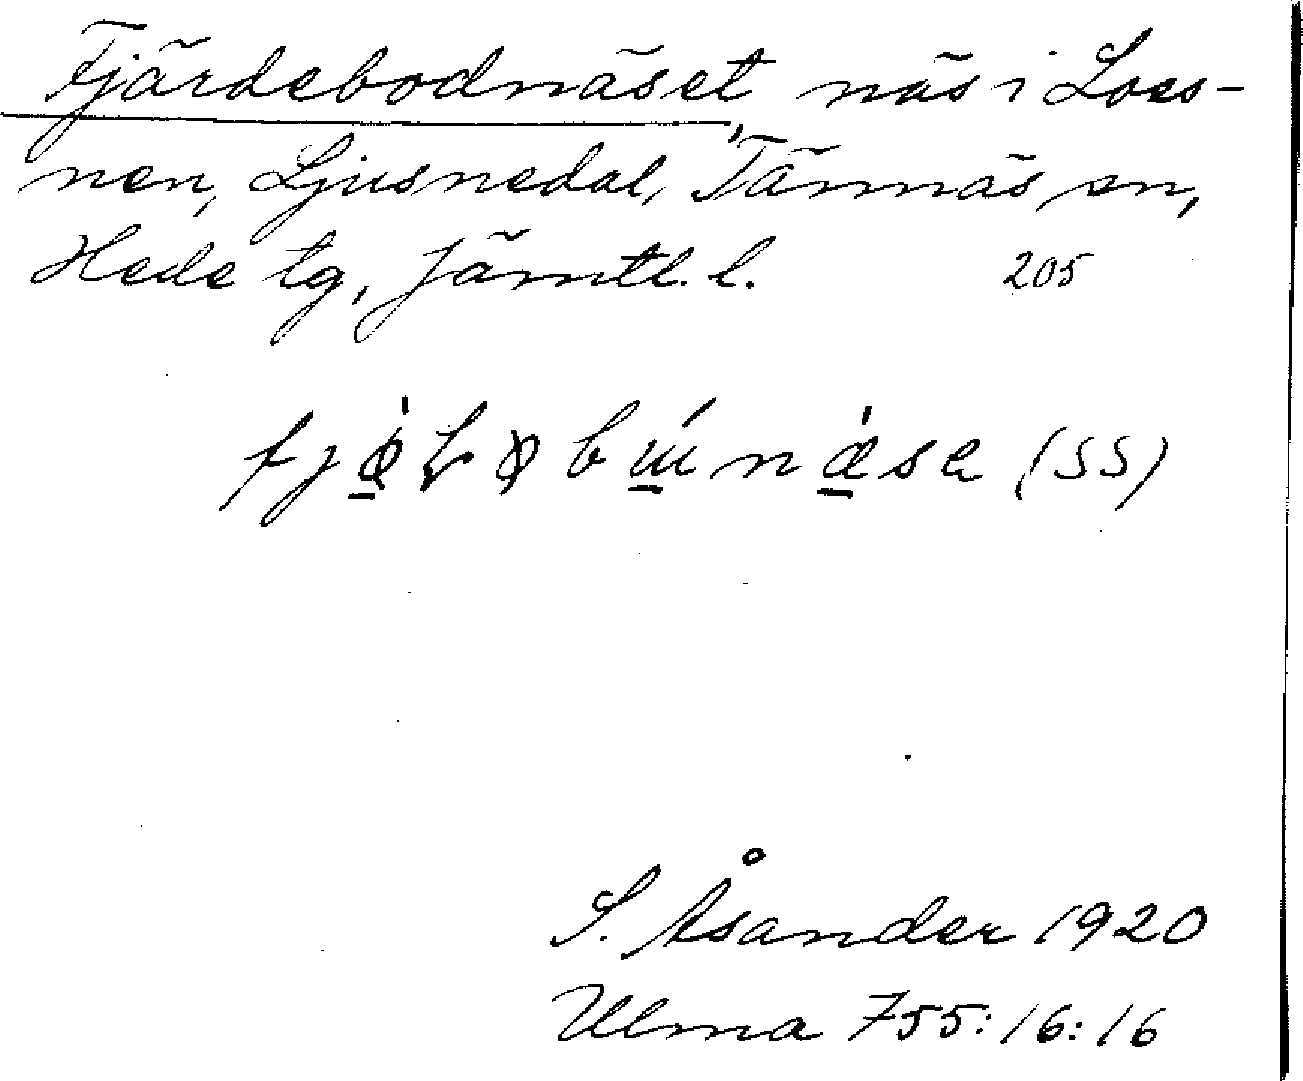 Fjärdebodnäset, näs i Loss-
nen, Ljusnedal, Tännäs sn,
Hede tg, Jämtl. l. 205
(SS)
S. Åsander 1920
Ulma 755:16:16